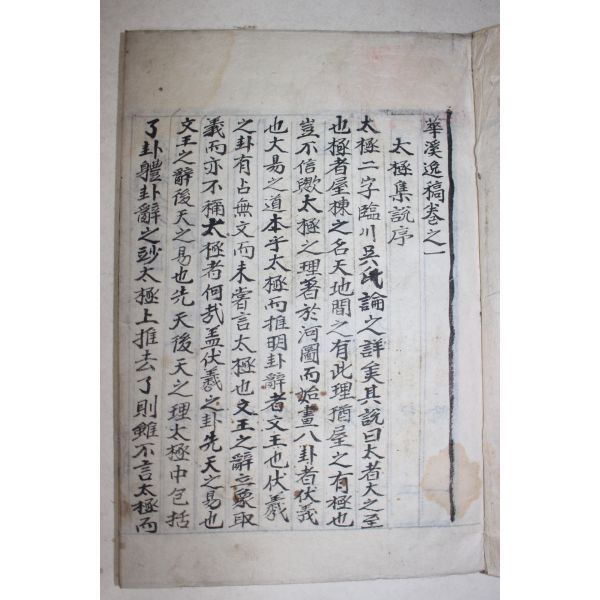 華溪逸稿卷之一
太極集說序
太極二字臨川吳氏論之詳矣其說曰太者大之至
也極者屋棟之名天地間之有此理猶屋之有極也
豈不信歟太極之理著於河圖而始畫八卦者伏羲
也大易之道本乎太極而推明卦辭者文王也伏羲
之卦有占無文而未嘗言太極也文王之辭立象取
義而亦不稱太極者何哉盖伏羲之卦先天之易也
文王之辭後天之易也先天後天之理太極中包括
了卦體卦辭之玅太極上推去了則雖不言太極而